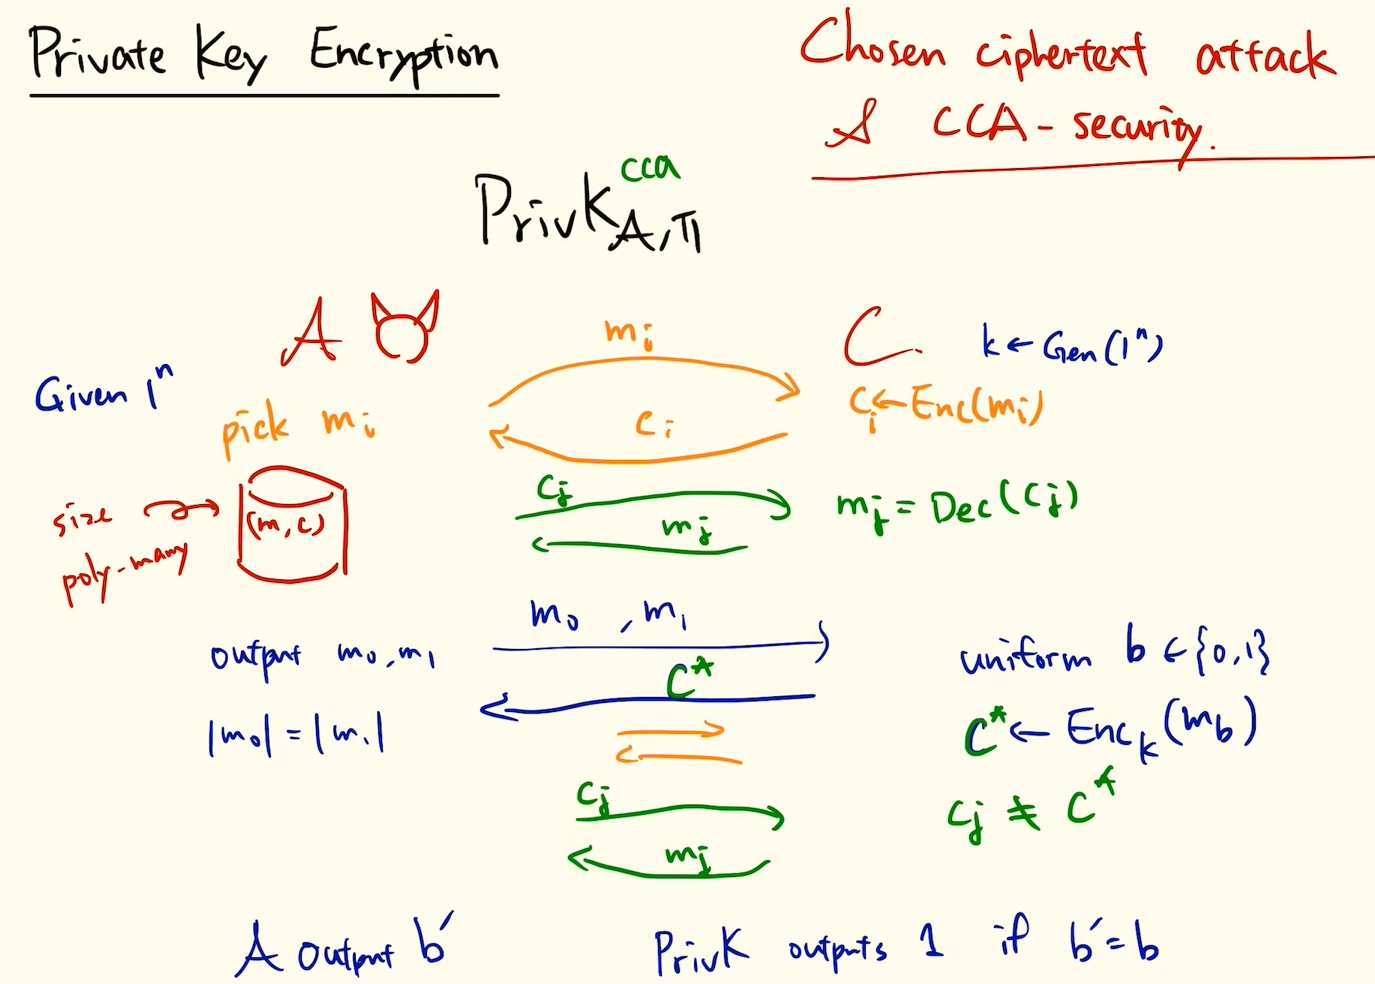 Private Key Encryption
Chosen ciphertext attack
& CCA-security.
PrivK^cca_A,Π
A
C
k ← Gen(1^n)
Given 1^n
pick m_i
m_i
c_i
c_i ← Enc(m_i)
size
poly-many
(m, c)
c_j
m_j
m_j = Dec(c_j)
output m_0, m_1
|m_0| = |m_1|
m_0, m_1
C*
uniform b ∈ {0,1}
C* ← Enc_k(m_b)
c_j
m_j
c_j ≠ C*
A output b′
PrivK outputs 1 if b′ = b